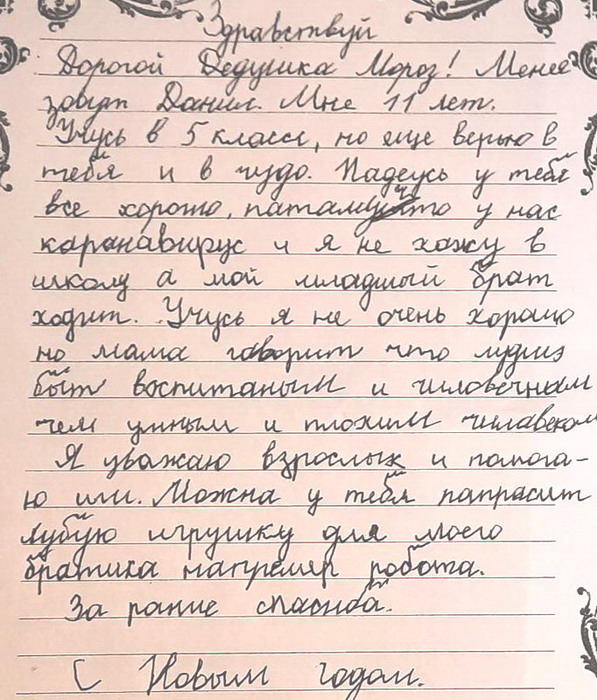 Здравствуй
Дорогой Дедушка Мороз! Менее
зовут Данил. Мне 11 лет.
Учусь в 5 классе, но еще верю в
тебя и в чудо. Надеусь у тебя
все хорошо, патамучто у нас
каранавирус и я не хажу в
школу а мой младшый брат
ходит. Учусь я не очень хорошо
но мама говорит что лудше
быт воспитаным и чиловечным
чем умным и плохим чилавеком
Я уважаю взрослых и помога-
ю или. Можна у тебя папрасит
лубую игрушку для моего
братика напремер робота.
За рание спасиба.
С Новым годом.